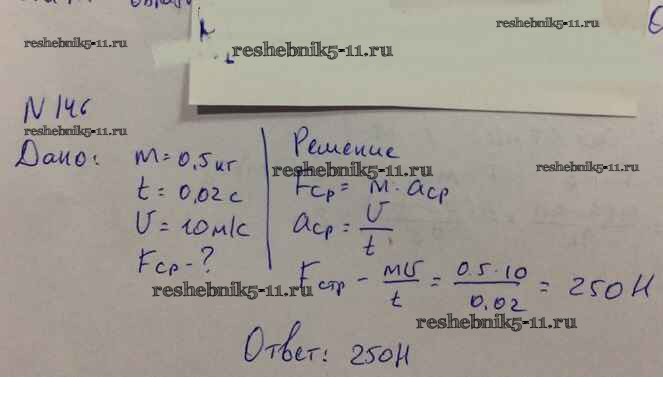 reshebnik5-11.ru
reshebnik5-11.ru
reshebnik5-11.ru
N 146
reshebnik5-11.ru
Дано: m = 0,5 кг
t = 0,02 с
U = 10 м/с
Fср - ?
Решение
reshebnik5-11.ru
reshebnik5-11.ru
Fср = m · aср
aср = U/t
Fстр - mU/t = 0.5·10/0,02 = 250 Н
reshebnik5-11.ru
reshebnik5-11.ru
Ответ: 250 Н